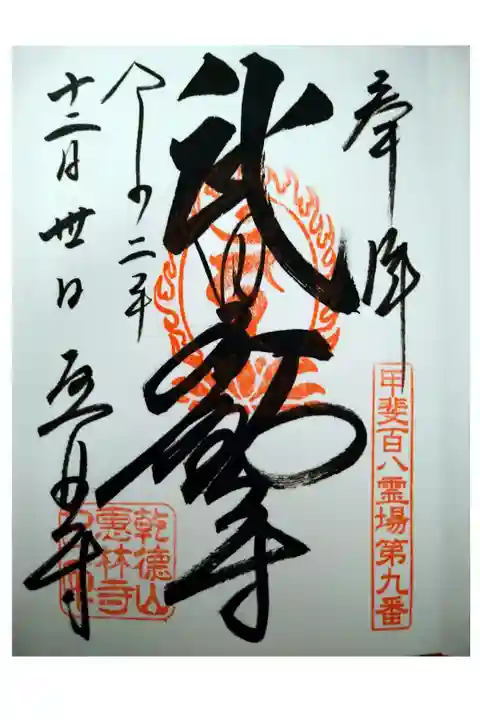 奉拝
甲斐百八霊場第九番
武田不動尊
令和二年
十二月卅日
恵林寺
乾徳山
惠林寺